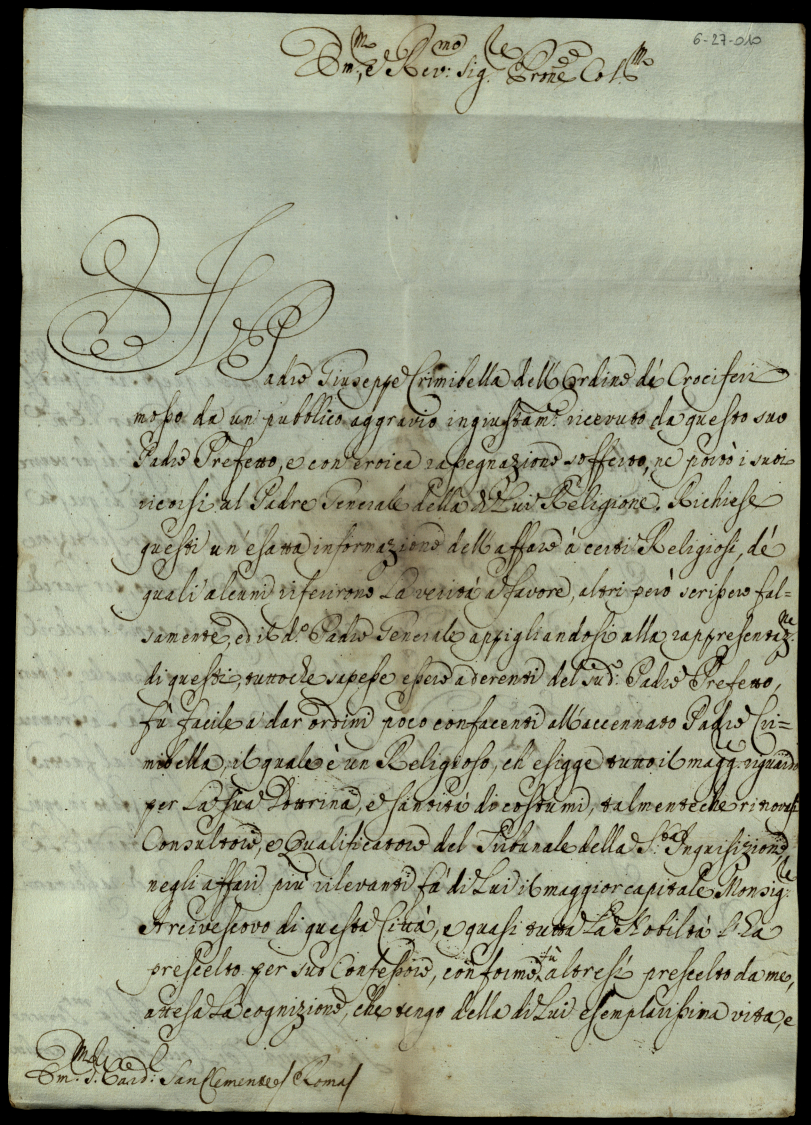 6-27-010
Em.mo, e Rev.mo Sig.re Prone Col.mo
Il Padre Giuseppe Crimibella dell'Ordine dé Crociferi
mosso da un pubblico aggravio ingiustam.e ricevuto da questo suo
Padre Prefetto, e con eroica rassegnazione sofferto, ne portò i suoi
ricorsi al Padre Generale della di Lui Religione. Richiese
questi un esatta informazione dell'affare à certi Religiosi, dé
quali alcuni riferirono La verità a favore, altri però scrissero fal=
samente, ed il d.o Padre Generale appigliandosi alla rappresentaz.ne
di questi, tuttoche sapesse essere aderenti del sud.o Padre Prefetto,
fù facile a dar ordini poco confacenti all'accennato Padre Cri=
mibella, il quale è un Religioso, ch'esigge tutto il magg.r riguardo
per La sua Dottrina, e santità di costumi, talmente che ritrovasi
Consultore, e Qualificatore del Tribunale della S.ta Inquisizione,
negli affari più rilevanti fà di Lui il maggior capitale Monsig.re
Arcivescovo di questa Città, e quasi tutta La Nobiltà L'ha
prescelto per suo Confessore, conforme fù altresì prescelto da me,
attesa La cognizione, che tengo della di Lui esemplarissima vitta, e
Em.mo S.re Card.e San Clemente / Roma /